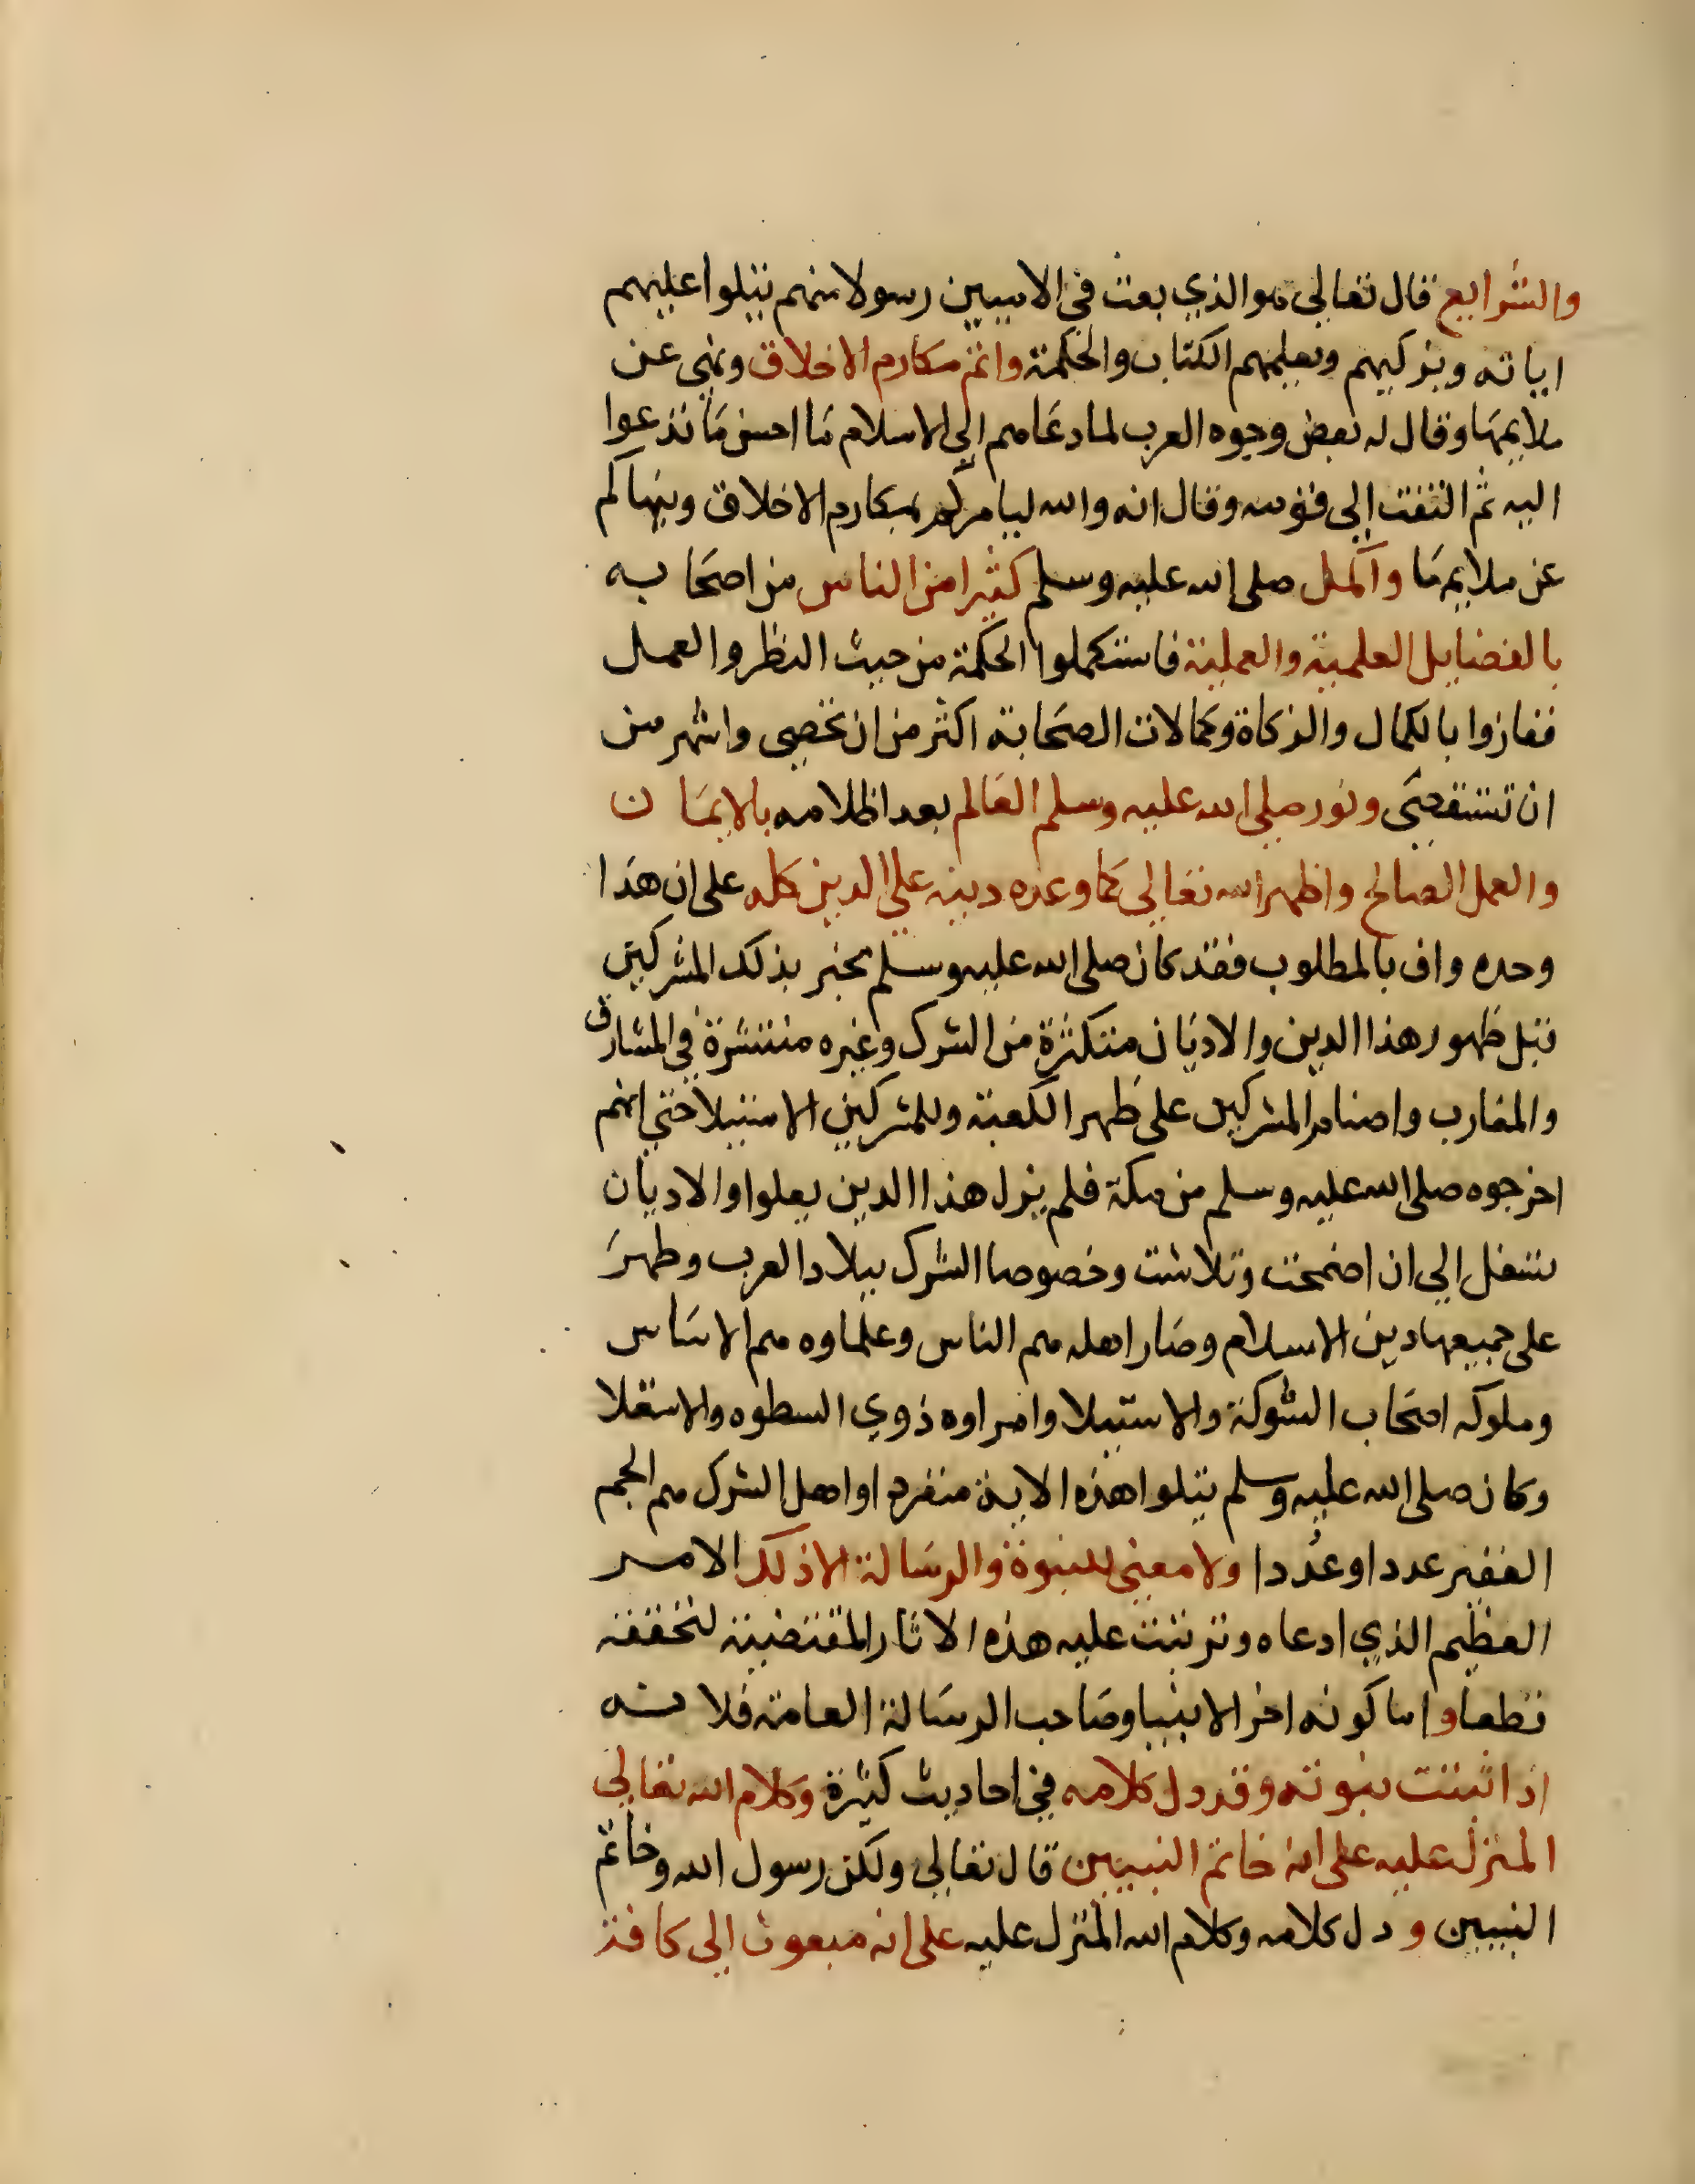 والشرايع قال تعالى هو الذي بعث في الاميين رسولا منهم يتلوا عليهم
اياته ويزكيهم ويعلمهم الكتاب والحكمة واتم مكارم الاخلاق ونهى عن
ملايمها وقال له بعض وجوه العرب لما دعاهم الى الاسلام ما احسن ما تدعوا
اليه ثم التفت الى قومه وقال انه والله ليامركم بمكارم الاخلاق وينهاكم
عن ملايمها واكمل صلى الله عليه وسلم كثيرا من الناس من اصحابه
بالفضايل العلمية والعملية فاستكملوا الحكمة من حيث النظر والعمل
ففازوا بالكمال والزكاة وكمالات الصحابة اكثر من ان تحصى واشهر من
ان تستقصى ونور صلى الله عليه وسلم العالم بعد اظلامه بالايمان
والعمل الصالح واظهر الله تعالى كما وعده دينه على الدين كله على ان هذا
وحده واف بالمطلوب فقد كان صلى الله عليه وسلم يخبر بذلك المشركين
قبل ظهور هذا الدين والاديان متكثرة من الشرك وغيره منتشرة في المشارق
والمغارب واصنام المشركين على ظهر الكعبة وللمشركين الاستيلا حتى انهم
اخرجوه صلى الله عليه وسلم من مكة فلم يزل هذا الدين يعلوا والاديان
تستفل الى ان اضمحت وتلاشت وخصوصا الشرك ببلاد العرب وظهر
على جميعها دين الاسلام وصار اهله هم الناس وعلماوه هم الاساس
وملوكه اصحاب الشوكة والاستيلا وامراوه ذوي السطوه والاستعلا
وكان صلى الله عليه وسلم يتلوا هذه الاية منفردا واهل الشرك هم الجم
الغفير عددا وعُددا ولا معنى للنبوة والرسالة الا ذلك الامر
العظيم الذي ادعاه وترتبت عليه هذه الاثار المقتضية لتحققه
قطعا واما كونه اخر الانبيا وصاحب الرسالة العامة فلانه
اذا ثبتت نبوته وقد دل كلامه في احاديث كثيرة وكلام الله تعالى
المنزل عليه على انه خاتم النبيين قال تعالى ولكن رسول الله وخاتم
النبيين و دل كلامه وكلام الله المنزل عليه على انه مبعوث الى كافة